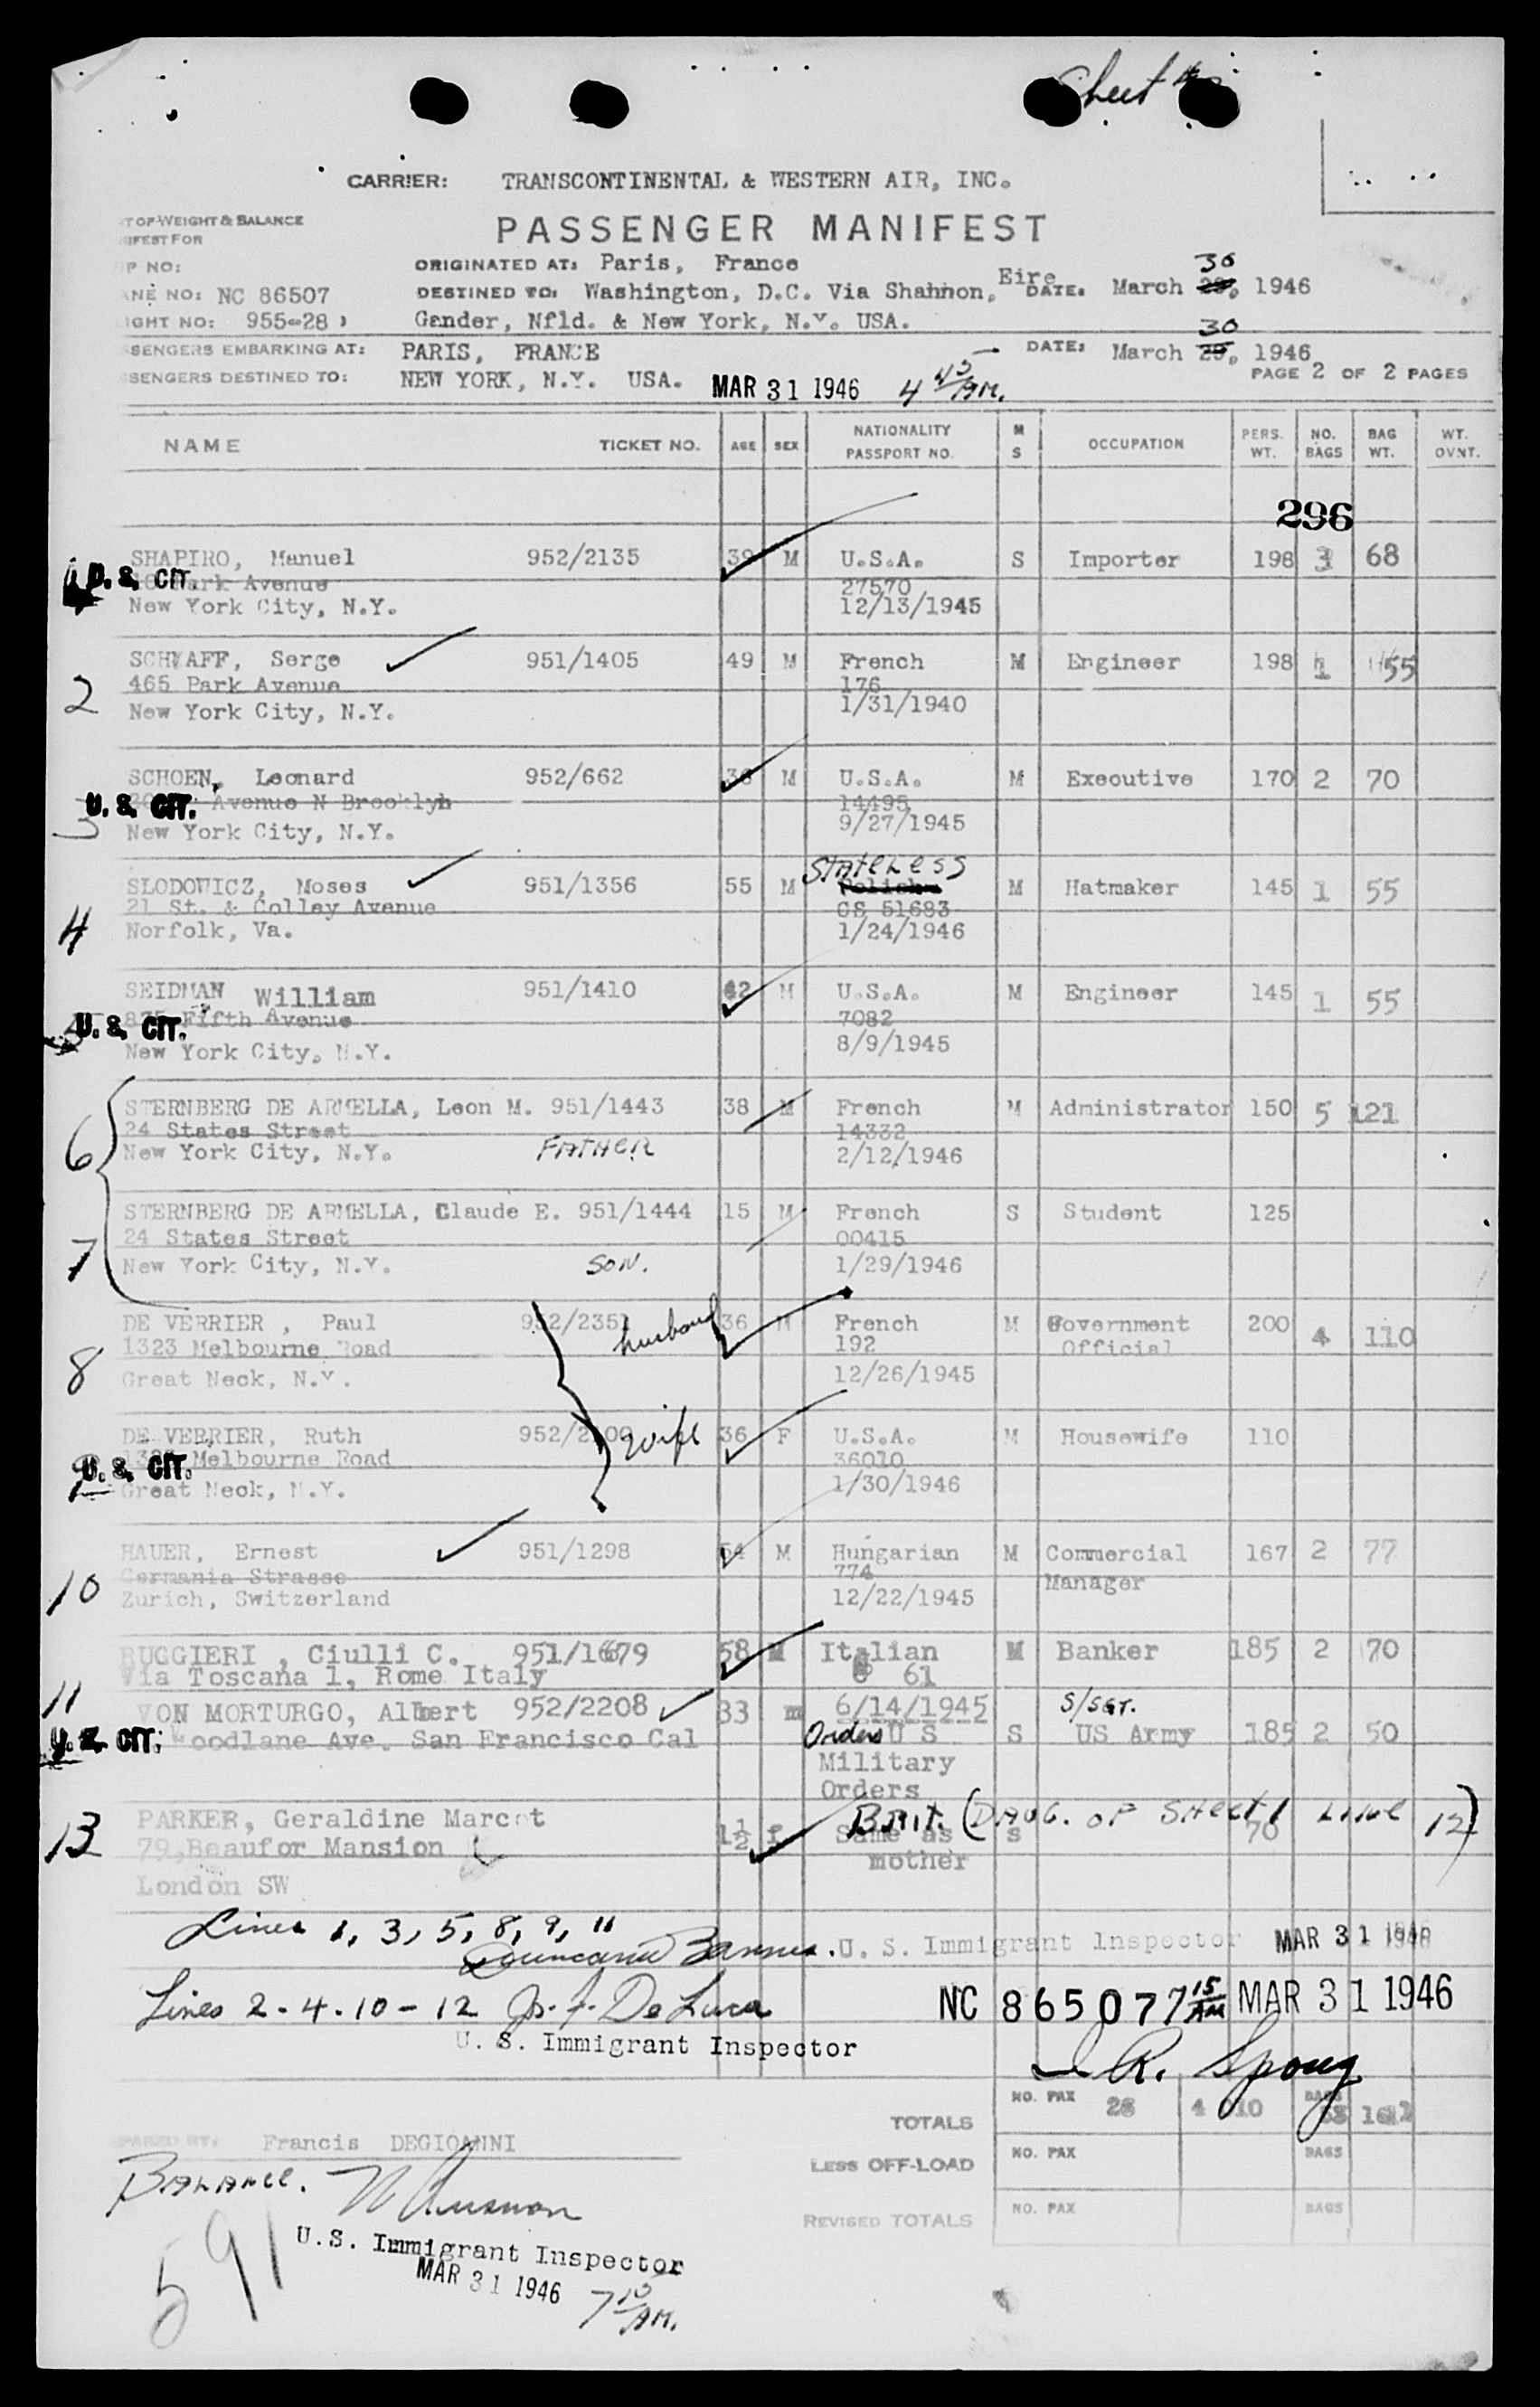 Sheet
CARRIER: TRANSCONTINENTAL & WESTERN AIR, INC.
T OF WEIGHT & BALANCE
IFEST FOR
PASSENGER MANIFEST
P NO:
ORIGINATED AT: Paris, France
30
ANE NO: NC 86507
DESTINED TO: Washington, D.C. Via Shannon, Eire DATE: March 29, 1946
IGHT NO: 955-28
Gander, Nfld. & New York, N.Y. USA.
30
SENGERS EMBARKING AT: PARIS, FRANCE DATE: March 29, 1946
SENGERS DESTINED TO: NEW YORK, N.Y. USA. MAR 31 1946 4 45 AM. PAGE 2 OF 2 PAGES
NAME TICKET NO. AGE SEX NATIONALITY PASSPORT NO. M S OCCUPATION PERS. WT. NO. BAGS BAG WT. WT. OVNT.
296
SHAPIRO, Manuel 952/2135 39 M U.S.A. S Importer 198 3 68
U.S. CIT. Park Avenue 27570
New York City, N.Y. 12/13/1945
SCHWAFF, Serge 951/1405 49 M French M Engineer 198 1 55
465 Park Avenue 176
2 New York City, N.Y. 1/31/1940
SCHOEN, Leonard 952/662 36 M U.S.A. M Executive 170 2 70
U.S. CIT. Avenue N Brooklyn 14495
3 New York City, N.Y. 9/27/1945
STATELESS
SLODOWICZ, Moses 951/1356 55 M Polish M Hatmaker 145 1 55
21 St. & Colley Avenue CS 51683
4 Norfolk, Va. 1/24/1946
SEIDMAN William 951/1410 42 M U.S.A. M Engineer 145 1 55
U.S. CIT. Fifth Avenue 7082
New York City, N.Y. 8/9/1945
STERNBERG DE ARMELLA, Leon M. 951/1443 38 M French M Administrator 150 5 121
24 States Street 14332
6 New York City, N.Y. FATHER 2/12/1946
STERNBERG DE ARMELLA, Claude E. 951/1444 15 M French S Student 125
24 States Street 00415
7 New York City, N.Y. SON. 1/29/1946
DE VERRIER , Paul 952/2351 husband 36 M French M Government 200 4 110
1323 Melbourne Road 192 Official
8 Great Neck, N.Y. 12/26/1945
DE VERRIER, Ruth wife 36 F U.S.A. M Housewife 110
U.S. CIT. Melbourne Road 36010
9 Great Neck, N.Y. 1/30/1946
HAUER, Ernest 951/1298 54 M Hungarian M Commercial 167 2 77
Germania Strasse 774 Manager
10 Zurich, Switzerland 12/22/1945
RUGGIERI , Ciulli C. 951/1679 58 M Italian M Banker 185 2 70
Via Toscana 1, Rome Italy 61
11 VON MORTURGO, Albert 952/2208 33 m 6/14/1945 S/SGT.
U.S. CIT. Woodlane Ave. San Francisco Cal Orders U S S US Army 185 2 50
Military
Orders
PARKER, Geraldine Marcot BRIT. (DAUG. OF SHEET 1 LINE 12)
13 79, Beaufor Mansion 1½ f Same as s 70
mother
London SW
Lines 1, 3, 5, 8, 9, 11
U. S. Immigrant Inspector MAR 31 1946
Lines 2 - 4 - 10 - 12 De Luca NC 86507 7 15 AM MAR 31 1946
U. S. Immigrant Inspector
R. Spong
TOTALS NO. PAX 28 4 10 BAGS
PARED BY: Francis DEGIOANNI
LESS OFF-LOAD NO. PAX BAGS
BALANCE.
REVISED TOTALS NO. PAX BAGS
591
U.S. Immigrant Inspector
MAR 31 1946 7 15 AM.